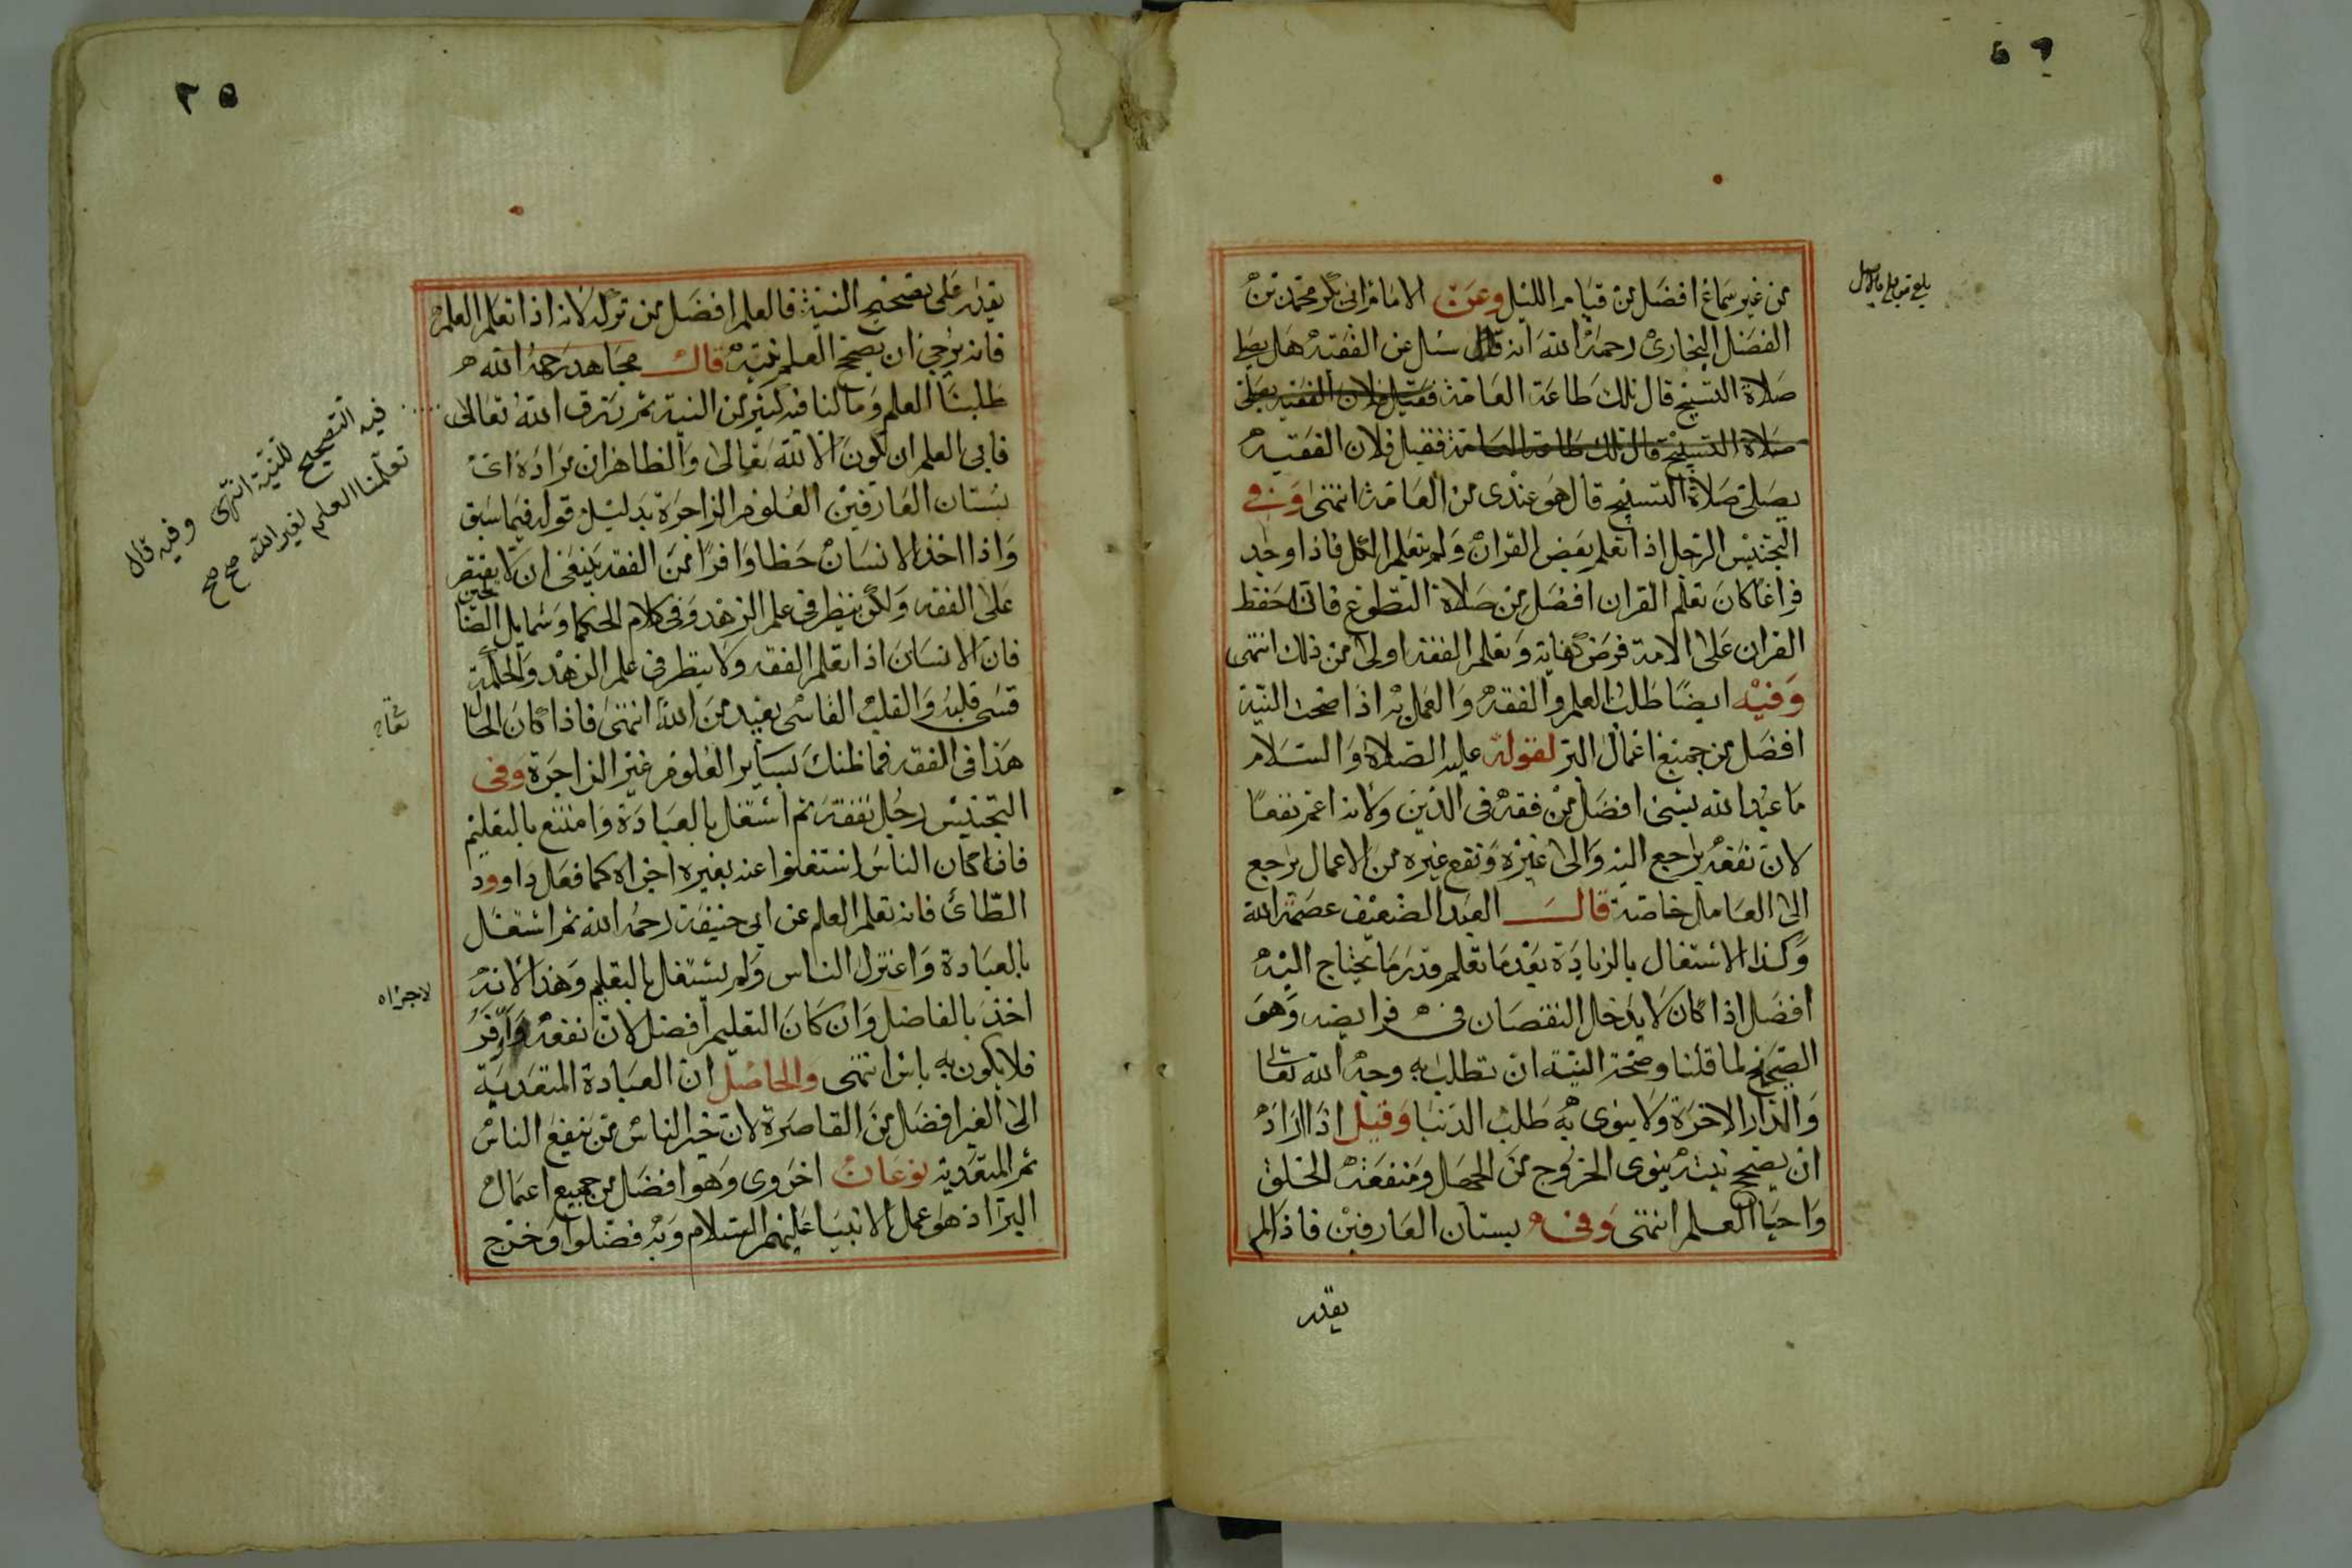 من غير سماع افضل من قيام الليل وعن الامام ابى بكر محمد بن
الفضل البخارى رحمه الله انه قال سئل عن الفقيه هل يصلى
صلاة التسبيح قال تلك طاعة العامة فقيل فلان الفقيه يصلى
صلاة التسبيح قال تلك طاعة العامة فقيل فلان الفقيه
يصلى صلاة التسبيح قال هو عندى من العامة انتهى وفى
التجنيس الرجل اذا تعلم بعض القران ولم يتعلم الكل فاذا وجد
فراغا كان تعلم القران افضل من صلاة التطوع فان حفظ
القران على الامة فرض كفاية وتعلم الفقه اولى من ذلك انتهى
وفيه ايضا طلب العلم والفقه والعمل به اذا صحت النية
افضل من جميع اعمال البر لقوله عليه الصلاة والسلام
ما عبد الله بشئ افضل من فقه فى الدين ولانه اعم نفعا
لان نفعه يرجع اليه والى غيره ونفع غيره من الاعمال يرجع
الى العامل خاصة قال العبد الضعيف عصمه الله
وكذا الاشتغال بالزيادة بعد ما تعلم قدر ما يحتاج اليه
افضل اذا كان لا يدخل النقصان فى فرايضه وهو
الصحيح لما قلنا وصحة النية ان تطلب به وجه الله تعالى
والدار الاخرة ولا ينوى به طلب الدنيا وقيل اذا اراد
ان يصحح نيته ينوى الخروج من الجهل ومنفعة الخلق
واحيا العلم انتهى وفى بستان العارفين فاذا لم
يقدر
يقدر على تصحيح النية فالعلم افضل من تركه لانه اذا تعلم العلم
فانه يرجى ان يصحح العلم نيته قال مجاهد رحمه الله
طلبنا العلم وما لنا فيه كثير من النية ثم رزق الله تعالى
فيه التصحيح للنية انتهى وفيه قال
تعلمنا العلم لغير الله صح صح
فابى العلم ان يكون الا لله تعالى والظاهر ان مراده اعنى
بستان العارفين العلوم الزاجرة بدليل قوله فيما سبق
واذا اخذ الانسان حظا وافرا من الفقه ينبغى ان لا يقتصر
على الفقه ولكن ينظر فى علم الزهد وفى كلام الحكما وشمايل الصالحين
فان الانسان اذا تعلم الفقه ولا ينظر فى علم الزهد والحكمة
قسى قلبه والقلب القاسى بعيد من الله انتهى فاذا كان الحال
تعالى
هذا فى الفقه فما ظنك بساير العلوم غير الزاجرة وفى
التجنيس رجل تفقه ثم اشتغل بالعبادة وامتنع بالتعليم
فان كان الناس استغنوا عنه بغيره اجزاه كما فعل داوود
الطائ فانه تعلم العلم عن ابى حنيفة رحمه الله ثم اشتغل
بالعبادة واعتزل الناس ولم يشتغل بالتعليم وهذا لانه
لاجزاه
اخذ بالفاضل وان كان التعليم افضل لان نفعه اوفر
فلا يكون به باس انتهى والحاصل ان العبادة المتعدية
الى الغير افضل من القاصرة لان خير الناس من ينفع الناس
ثم المتعدية نوعان اخروى وهو افضل من جميع اعمال
البر اذ هو عمل الانبيا عليهم السلام وبه فضلوا وخرج